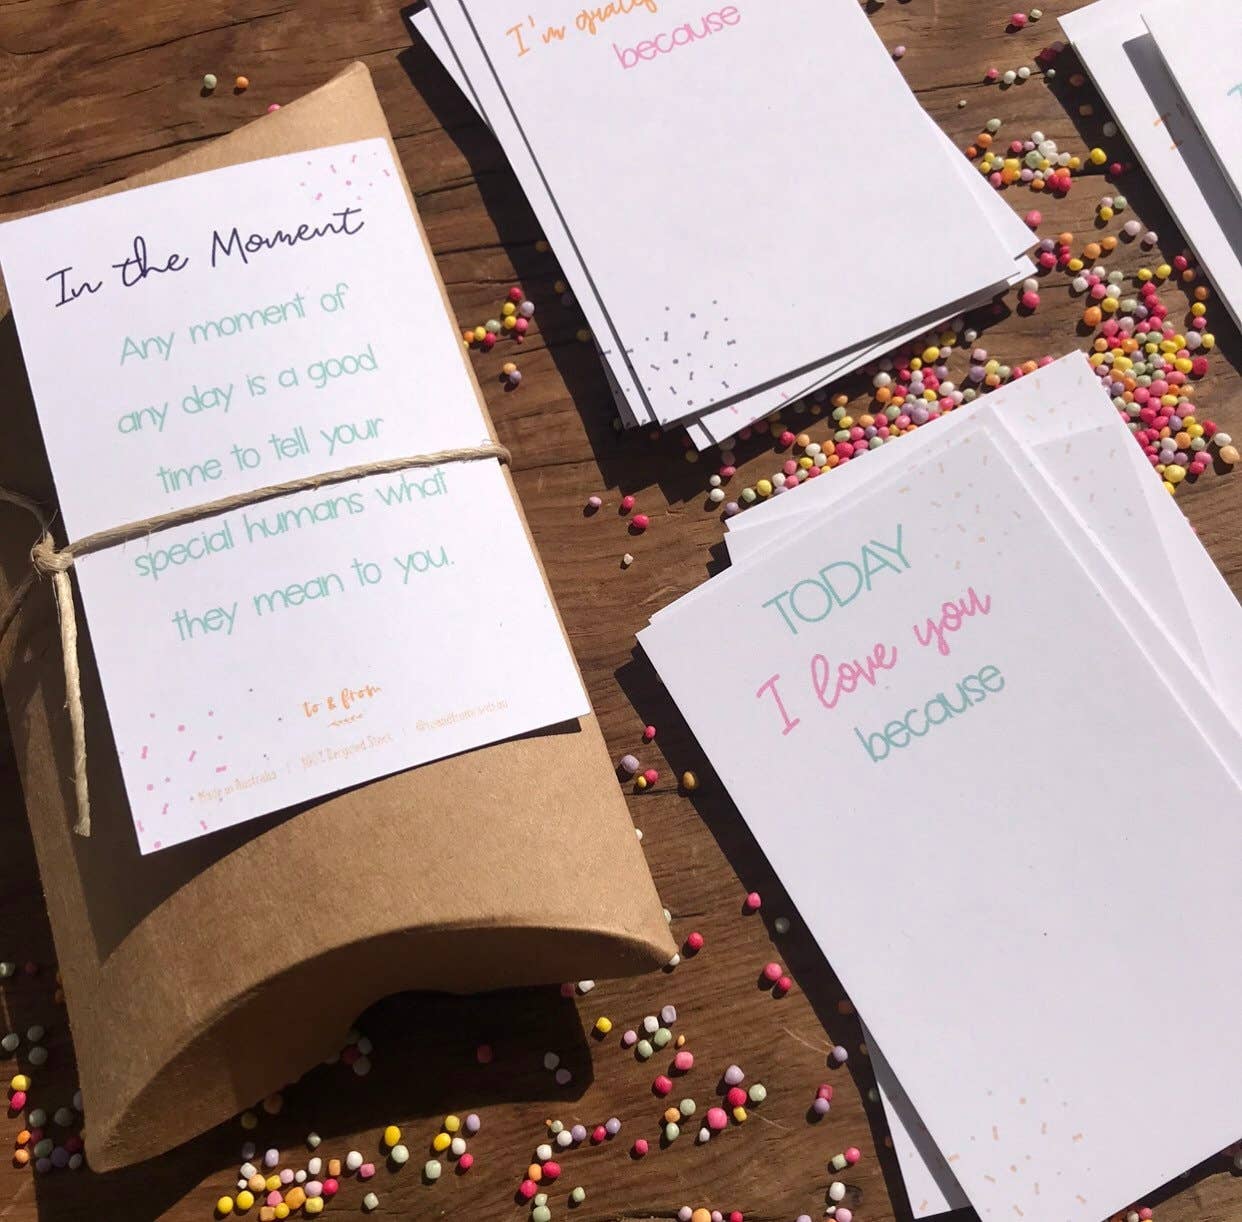 In the Moment
Any moment of
any day is a good
time to tell your
special humans what
they mean to you.
to & from
Made in Australia | 100% Recycled Stock |
I'm
because
TODAY
I love you
because